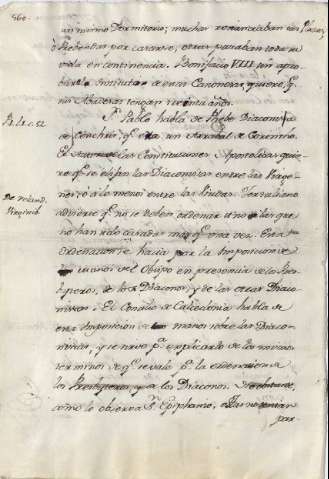 560.
un mismo Dormitorio; muchas renunciaban sus Plazas
ó Prebendas por casarse, otras pasaban toda su
vida en continencia. Bonifacio VIII sin apro-
bar el Instituto de estas Canonesas, quiere q.e
sus Abadesas tengan treinta años.
S.n Pablo habla de Phebe Diaconisa
de Cenchris, q.e era un Arrabal de Corintho.
El Autor de las Constituciones Apostolicas quie-
re q.e se elijan las Diaconisas entre las Virge-
nes, ó á lo menos entre las Viudas. Tertuliano
advierte q.e no se deben ordenar sino las que
no han sido casadas mas q.e una vez. Esta
ordenacion se hacia por la Imposicion de
manos del Obispo en presencia de los Pres-
byteros, de los Diaconos, y de las otras Diaco-
nisas. El Concilio de Calcedonia habla de
esta Imposicion de manos sobre las Diaco-
nisas, y se sirve p.a explicarlo de los mismos
terminos de q.e se vale p.a la ordenacion de
los Presbyteros, y de los Diaconos. No obstante,
como lo observa S.n Epiphanio, estas no tenian
par-
De veland.
Virginib.